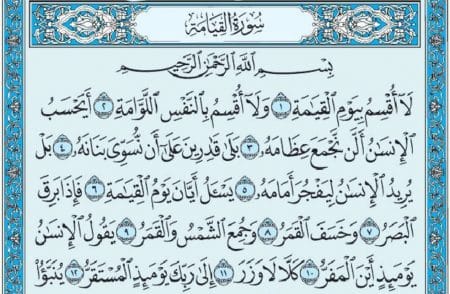 سُورَةُ القِيَامَةِ
بِسْمِ اللَّهِ الرَّحْمَٰنِ الرَّحِيمِ
لَا أُقْسِمُ بِيَوْمِ الْقِيَامَةِ ١ وَلَا أُقْسِمُ بِالنَّفْسِ اللَّوَّامَةِ ٢ أَيَحْسَبُ
الْإِنسَانُ أَلَّن نَّجْمَعَ عِظَامَهُ ٣ بَلَىٰ قَادِرِينَ عَلَىٰ أَن نُّسَوِّيَ بَنَانَهُ ٤ بَلْ
يُرِيدُ الْإِنسَانُ لِيَفْجُرَ أَمَامَهُ ٥ يَسْـَٔلُ أَيَّانَ يَوْمُ الْقِيَامَةِ ٦ فَإِذَا بَرِقَ
الْبَصَرُ ٧ وَخَسَفَ الْقَمَرُ ٨ وَجُمِعَ الشَّمْسُ وَالْقَمَرُ ٩ يَقُولُ الْإِنسَانُ
يَوْمَئِذٍ أَيْنَ الْمَفَرُّ ١٠ كَلَّا لَا وَزَرَ ١١ إِلَىٰ رَبِّكَ يَوْمَئِذٍ الْمُسْتَقَرُّ ١٢ يُنَبَّؤُا